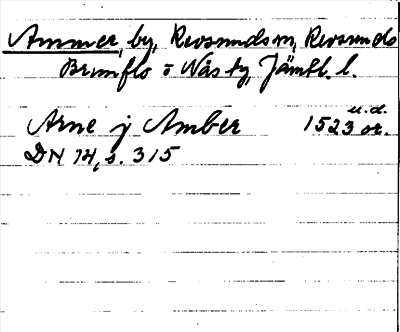 Ammer, by, Revsunds sn, Revsunds
Brunflo o Näs tg, Jämtl. l.
u.d.
Arne j Amber 1523 or.
DN 14, s. 315